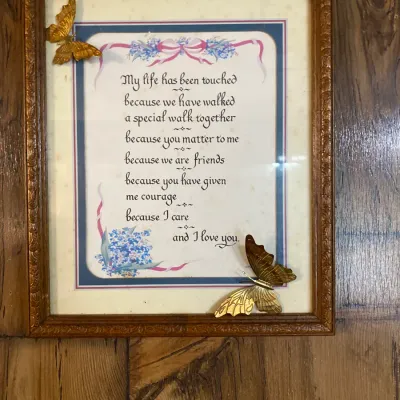 My life has been touched
because we have walked
a special walk together
because you matter to me
because we are friends
because you have given
me courage
because I care
and I love you.